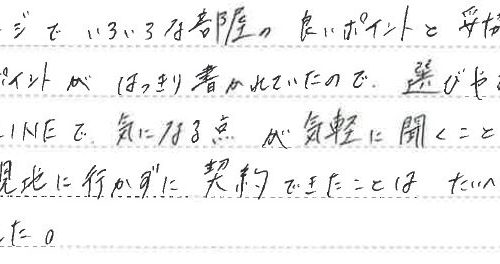 ジで いろいろな部屋の 良いポイントと 妥協
ポイントが はっきり書かれていたので、選びや
LINEで、気になる点 が気軽に聞くこと
現地に行かずに 契約できたことは たいへ
した。